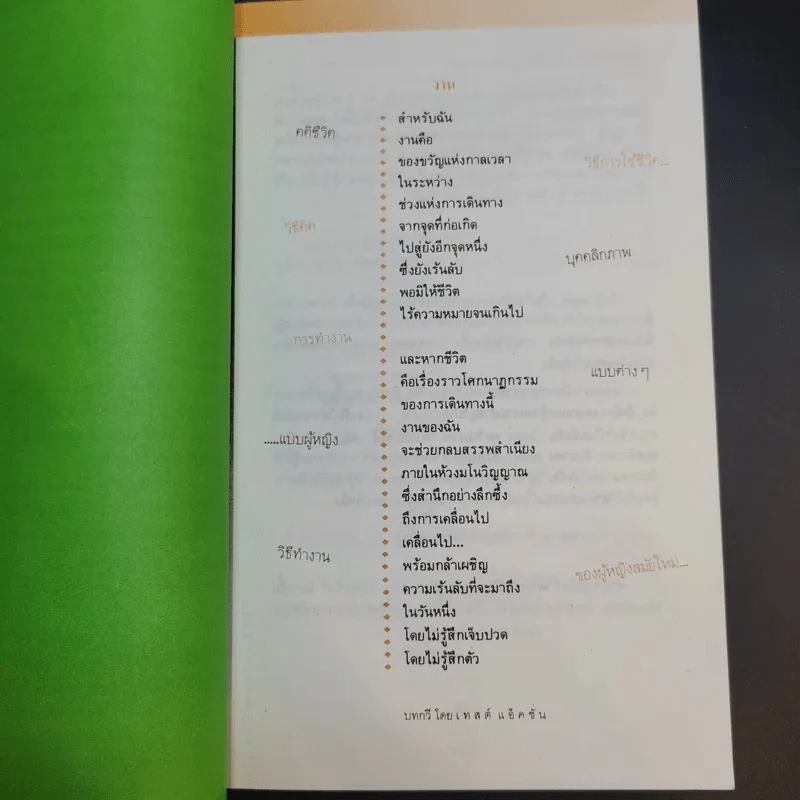 งาน
สำหรับฉัน
งานคือ
ของขวัญแห่งกาลเวลา
ในระหว่าง
ช่วงแห่งการเดินทาง
จากจุดที่ก่อเกิด
ไปสู่ยังอีกจุดหนึ่ง
ซึ่งยังเร้นลับ
พอมิให้ชีวิต
ไร้ความหมายจนเกินไป
และหากชีวิต
คือเรื่องราวโศกนาฏกรรม
ของการเดินทางนี้
งานของฉัน
จะช่วยกลบสรรพสำเนียง
ภายในห้วงมโนวิญญาณ
ซึ่งสำนึกอย่างลึกซึ้ง
ถึงการเคลื่อนไป
เคลื่อนไป...
พร้อมกล้าเผชิญ
ความเร้นลับที่จะมาถึง
ในวันหนึ่ง
โดยไม่รู้สึกเจ็บปวด
โดยไม่รู้สึกตัว
บทกวี โดย เทสต์ แอ็คชั่น
คติชีวิต
วิธีคิด
การทำงาน
.....แบบผู้หญิง
วิธีทำงาน
วิธีการใช้ชีวิต...
บุคคลิกภาพ
แบบต่างๆ
ของผู้หญิงสมัยใหม่...